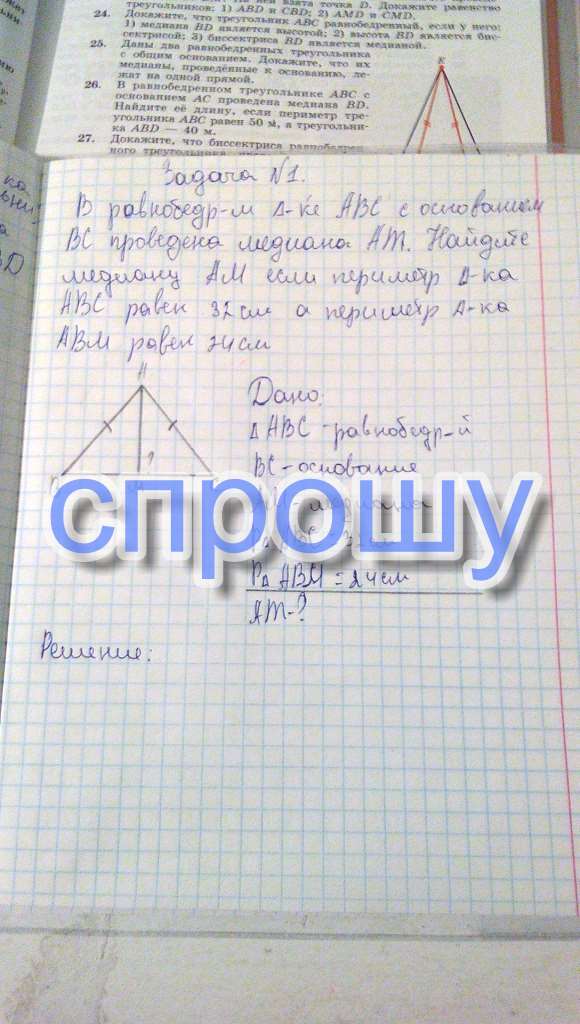 треугольников: 1) ABD и CBD; 2) AMD и CMD.
24. Докажите, что треугольник ABC равнобедренный, если у него:
1) медиана BD является высотой; 2) высота BD является бис-
сектрисой; 3) биссектриса BD является медианой.
25. Даны два равнобедренных треугольника
с общим основанием. Докажите, что их
медианы, проведённые к основанию, ле-
жат на одной прямой.
26. В равнобедренном треугольнике ABC с
основанием AC проведена медиана BD.
Найдите её длину, если периметр тре-
угольника ABC равен 50 м, а треугольни-
ка ABD — 40 м.
27. Докажите, что биссектриса
Задача N1.
В равнобедр-м Δ-ке ABC с основанием
BC проведена медиана AM. Найдите
медиану AM если периметр Δ-ка
ABC равен 32 см а периметр Δ-ка
ABM равен 24 см
A
Дано:
Δ ABC - равнобедр-й
?
BC - основание
B M
медиана
спрошу
PΔ ABM = 24 см
AM - ?
Решение: